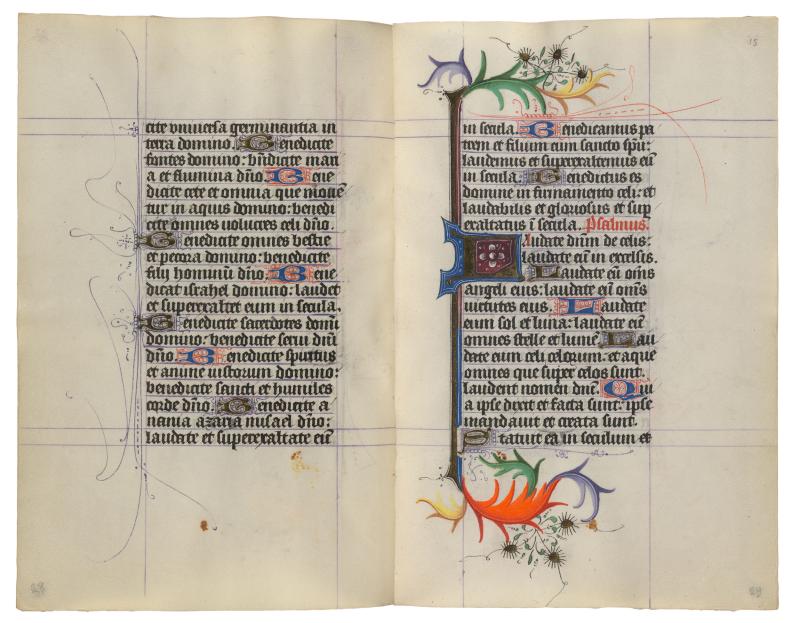 cite vniuersa germinantia in
terra domino. Benedicite
fontes domino: bn̄dicite mari
a et flumina dn̄o. Bene
dicite cete et omnia que mouē
tur in aquis domino: benedi
cite omnes uolucres celi dn̄o.
Benedicite omnes bestie
et pecora domino: benedicite
filij hominū dn̄o. Bene
dicat israhel domino: laudet
et superexaltet eum in secula.
Benedicite sacerdotes domī
domino: benedicite serui dn̄i
dn̄o. Benedicite spiritus
et anime iustorum domino:
benedicite sancti et humiles
corde dn̄o. Benedicite a
nania azaria misael dn̄o:
laudate et superexaltate eū
28
15
in secula. Benedicamus pa
trem et filium cum sancto spū:
laudemus et superexaltemus eū
in secula. Benedictus es
domine in firmamento celi: et
laudabilis et gloriosus et sup
exaltatus ī secula. Psalmus.
Laudate dn̄m de celis:
laudate eū in excelsis.
Laudate eū om̄s
angeli eius: laudate eū om̄s
uirtutes eius. Laudate
eum sol et luna: laudate eū
omnes stelle et lumē. Lau
date eum celi celorum: et aque
omnes que super celos sunt.
laudent nomen dn̄i. Qui
a ipse dixit et facta sunt: ipse
mandauit et creata sunt.
Statuit ea in seculum et
29